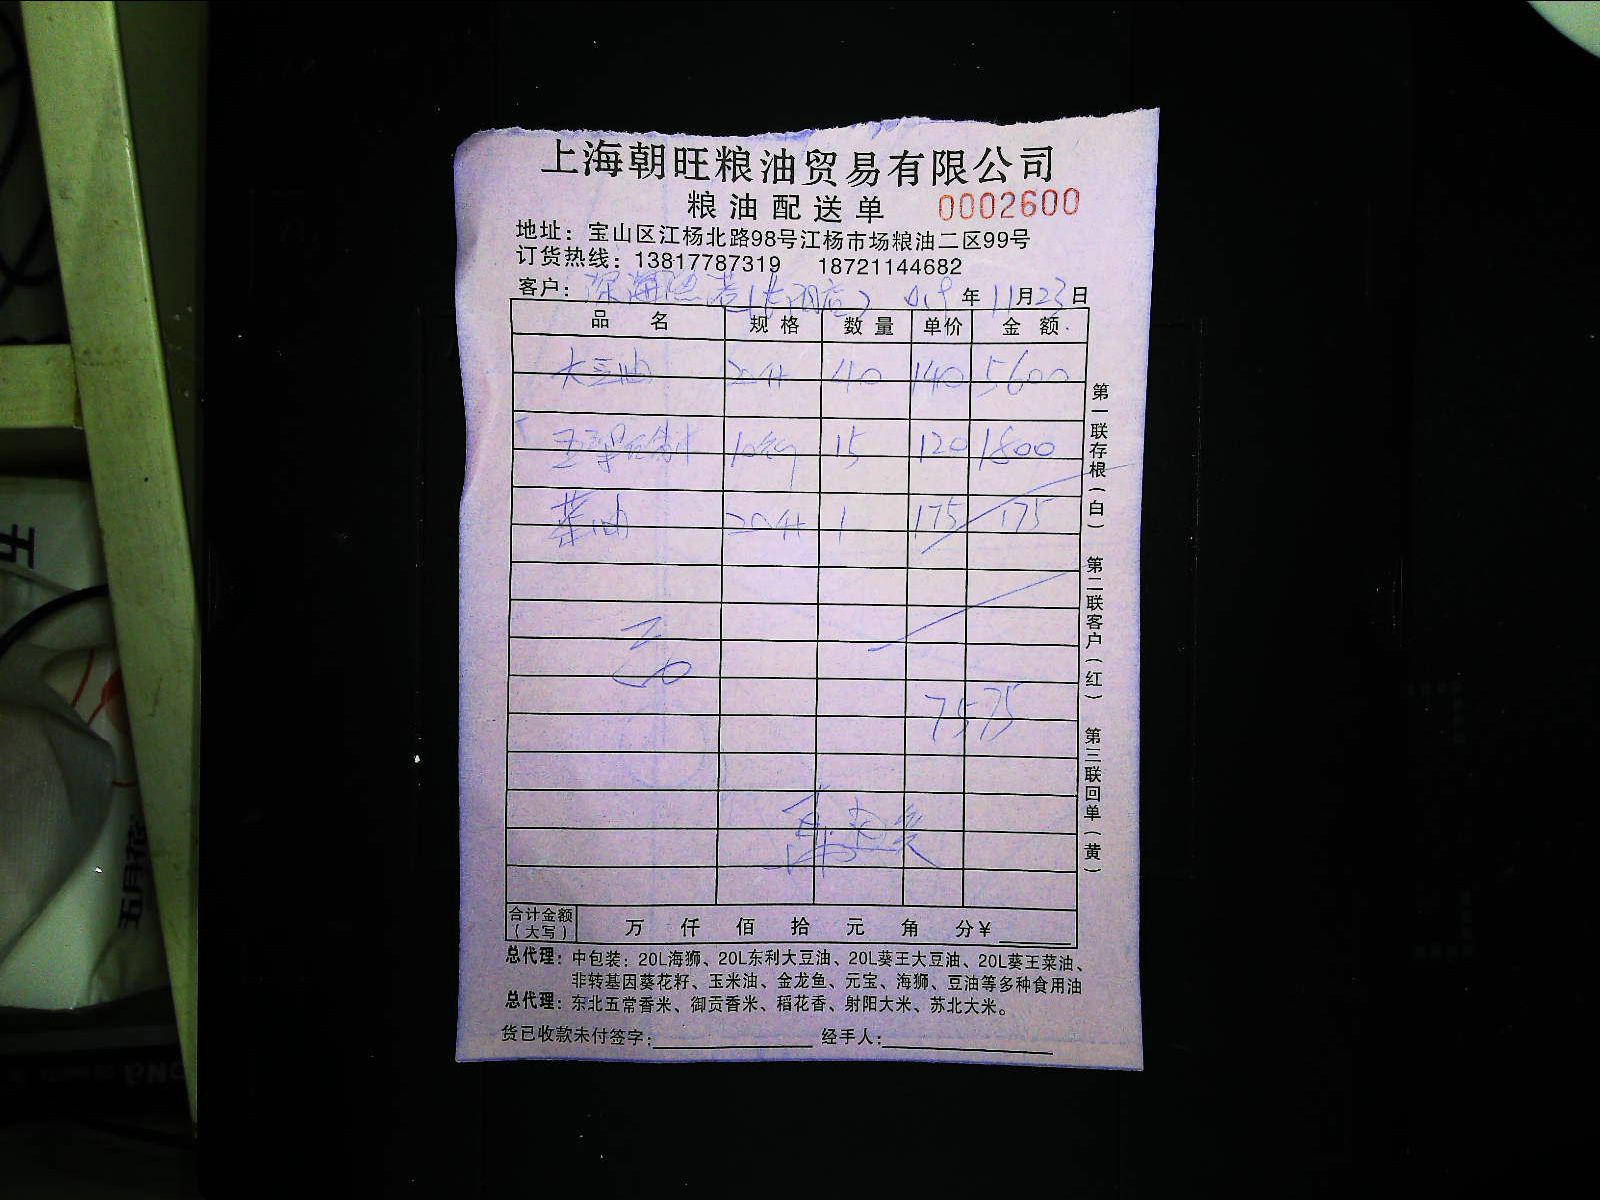 上海朝旺粮油贸易有限公司
粮油配送单 0002600
地址：宝山区江杨北路98号江杨市场粮油二区99号
订货热线：13817787319 18721144682
客户： 年11月23日
品名 规格 数量 单价 金额
大豆油 20升 40 140 5600
10 15 120 1800
菜油 20升 1 175 175
7575
合计金额（大写） 万 仟 佰 拾 元 角 分￥
总代理：中包装：20L海狮、20L东利大豆油、20L葵王大豆油、20L葵王菜油、
非转基因葵花籽、玉米油、金龙鱼、元宝、海狮、豆油等多种食用油
总代理：东北五常香米、御贡香米、稻花香、射阳大米、苏北大米。
货已收款未付签字： 经手人：
第一联存根（白） 第二联客户（红） 第三联回单（黄）
五
五月花